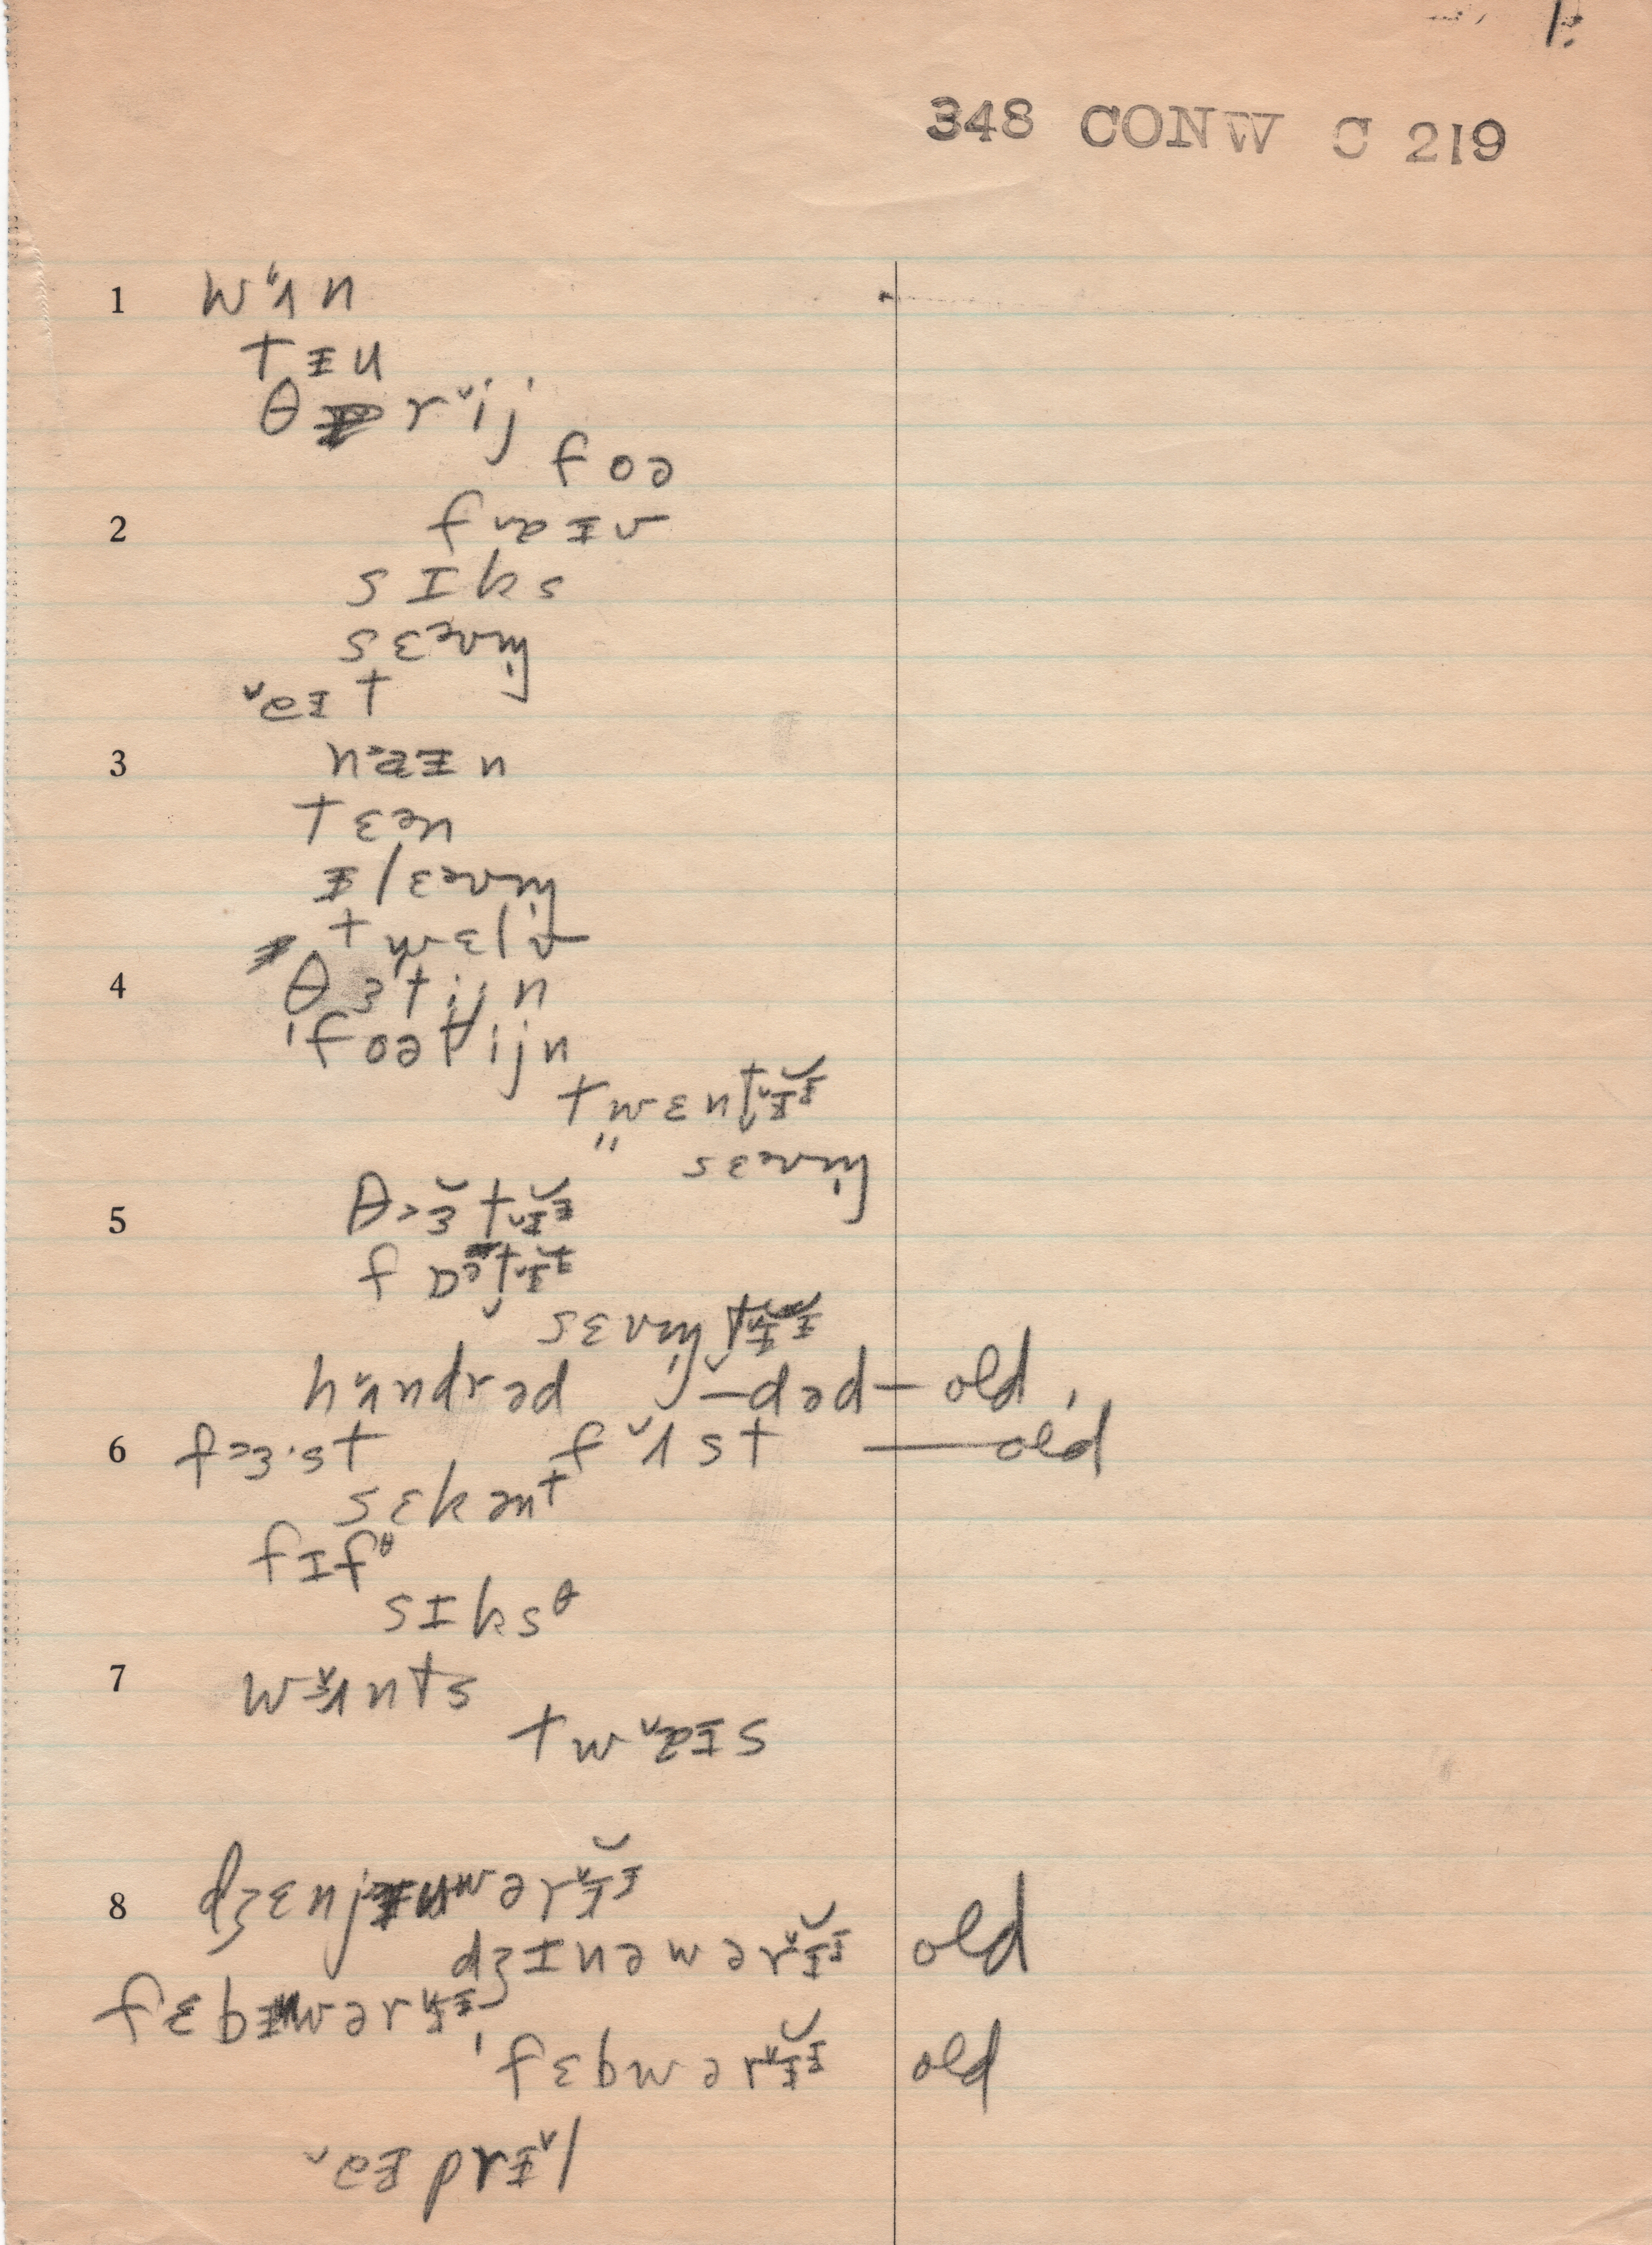 1.
348 CONW S 219
1 wʌ˅n
tᵻu
θr˅ij
foə
2 fɑᵻv
sɪks
sɛᵊvm̩
˅eɪt
3 nɑᵻn
tɛᵊn
ᵻlɛᵊvm̩
twɛlv
4 θɜtijn
ˈfoətijn
twɛnt˅ɪᵻ
" sɛᵊvm̩
5 θɜt˅ɪᵻ
fɒᵊt˅ɪᵻ
sɛvm̩t˅ɪᵻ
hʌ˅ndrəd –dəd – old,
6 fɜ·st f˅ʌst — old
sɛkənt
fɪfθ
sɪksθ
7 w˅ʌnts
tw˅ɑɪs
8 dʒɛnjwər˅ɪᵻ
dʒɪnəwər˅ɪᵻ old
fɛbwər˅ɪᵻ
ˈfɛbwər˅ɪᵻ old
˅eᵻprᵻ˅l